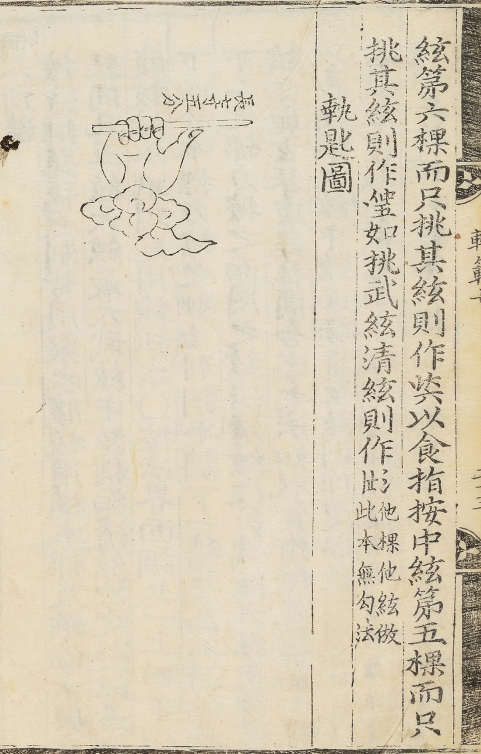 絃第六棵而只挑其絃則作以食指按中絃第五棵而只
挑其絃則作如挑武絃清絃則作
他棵他絃倣
此本無勾法
執匙圖
長七寸五分